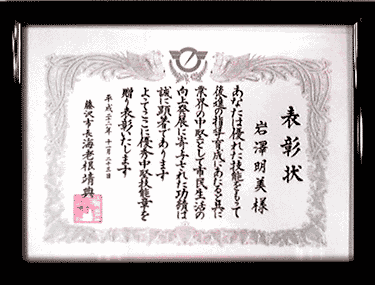 表彰状
岩澤明美様
あなたは優れた技能をもって
後進の指導育成にあたると共に
業界の中堅として市民生活の
向上発展に寄与された功績は
誠に顕著であります
よってここに優秀中堅技能章を
贈り表彰いたします
平成二十二年十一月二十三日
藤沢市長海老根靖典